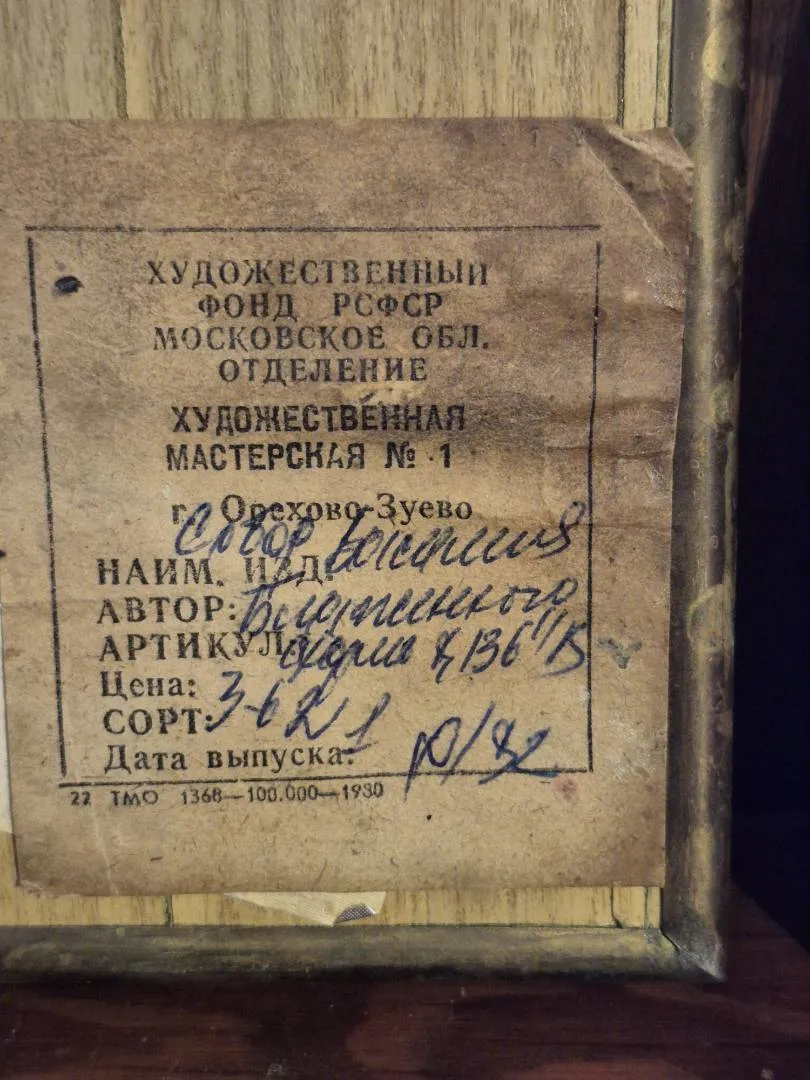 ХУДОЖЕСТВЕННЫЙ
ФОНД РСФСР
МОСКОВСКОЕ ОБЛ.
ОТДЕЛЕНИЕ
ХУДОЖЕСТВЕННАЯ
МАСТЕРСКАЯ № 1
г. Орехово-Зуево
Собор Василия
НАИМ. ИЗД.
АВТОР: Блаженного
АРТИКУЛ
Цена: 3-62
СОРТ: 1
Дата выпуска:
22 ТМО 1368—100.000—1980